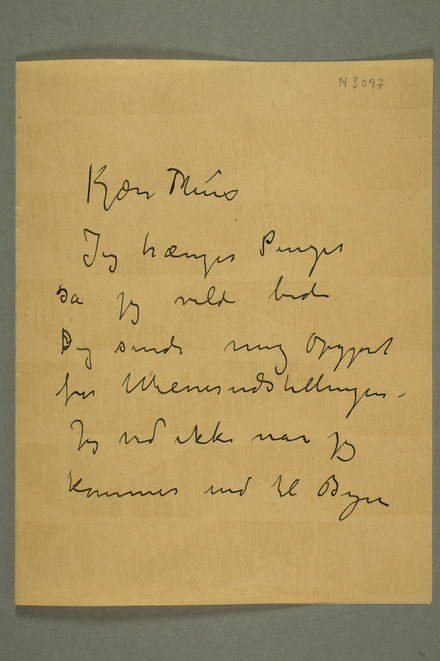 N 3097
Kjære Thiis
Jeg trænger Penger
så jeg vilde bede
Dig sende mig Opgjøret
for Wienerudstillingen –
Jeg ved ikke når jeg
kommer ind til Byen